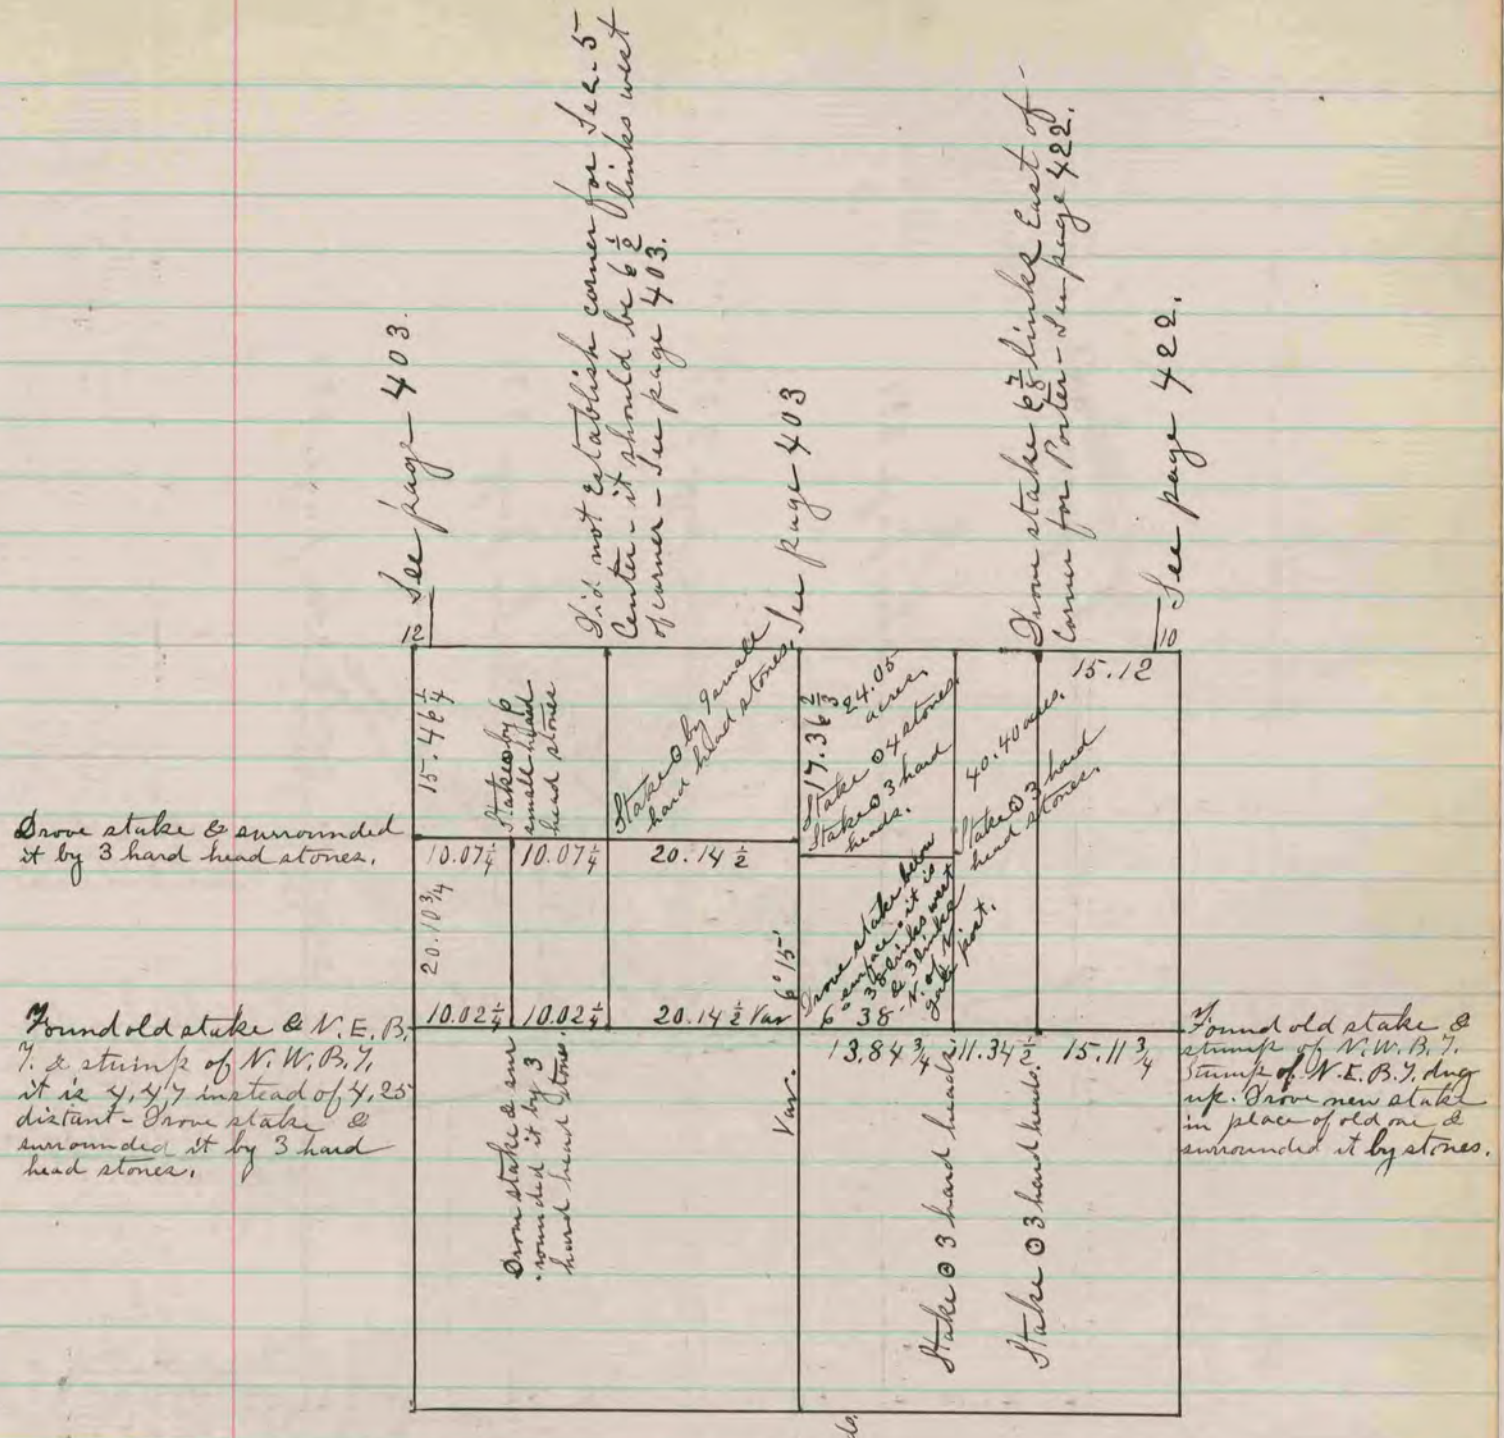 See page 403.
Did not Establish corner for Sec. 5
Center - it should be 6 1/2 links west
of corner - See page 403.
See page 403
Drove stake 6 7/8 links East of
Corner for Porter - See page 422.
See page 422.
12
10
15.46 1/4
Stake by 6
small hard
head stones
Stake by 7 small
hard head stones.
17.36 2/3
24.05
acres.
Stake 4 stones
Stake 3 hard
heads.
40.40 acres.
Stake 3 hard
head stones.
15.12
Drove stake & surrounded
it by 3 hard head stones.
10.07 1/4
10.07 1/4
20.14 1/2
20.10 3/4
Drove stake below
surface. it is
38 links west
& 3 links
N. of N.
gate post.
Found old stake & N.E.B.
T. & stump of N.W.B.T.
it is 4.47 instead of 4.25
distant - Drove stake &
surrounded it by 3 hard
head stones.
10.02 1/4
10.02 1/4
20.14 1/2 Var
6° 15'
6° 38'
Var.
13.84 3/4
11.34 1/2
15.11 3/4
Found old stake &
stump of N.W.B.T.
Stump of N.E.B.T. dug
up. Drove new stake
in place of old one &
surrounded it by stones.
Drove stake & sur
rounded it by 3
hard head stones.
Stake 3 hard heads.
Stake 3 hard heads.
ds.